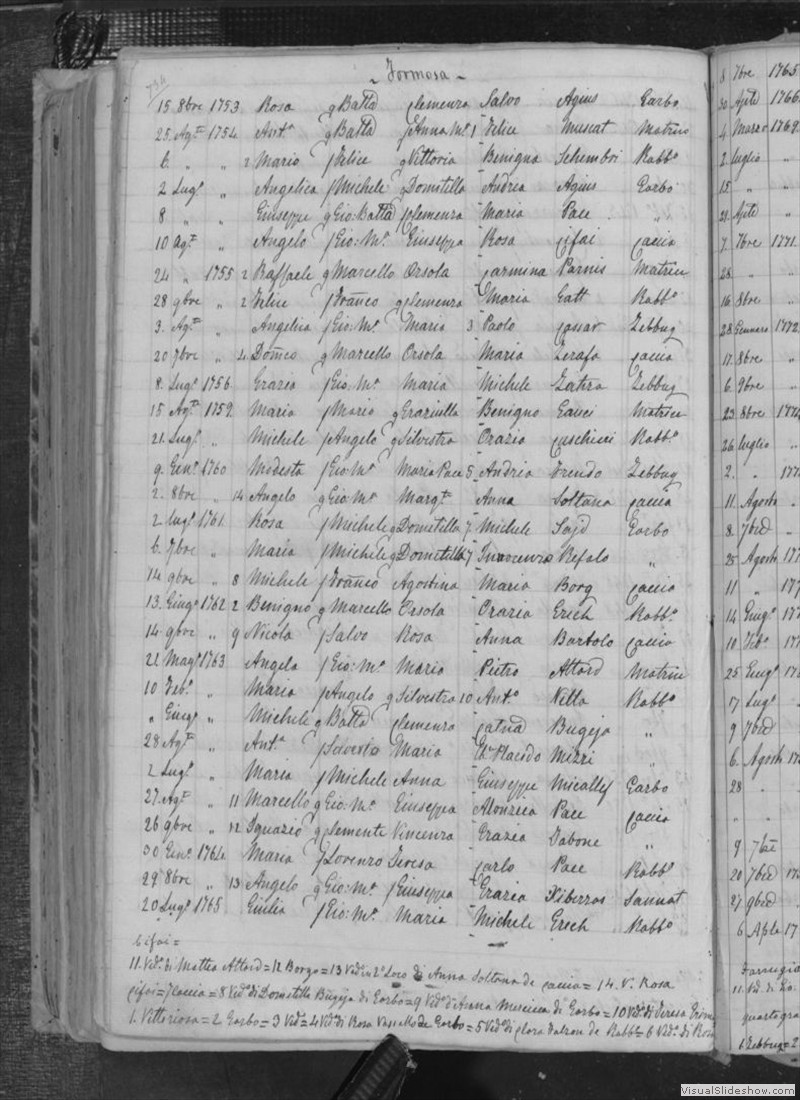 734
Formosa
15 8bre 1753 Rosa q Batta Clemenza Salvo Agius Garbo
25 Agto 1754 Anta q Batta f Anna Ma 1 Felice Muscat Matrice
6 " " 2 Mario f Felice q Vittoria Benigna Schembri Rabbo
2 Lugo " Angelica f Michele Domitilla Andrea Agius Garbo
8 " " Giuseppe q Gio: Batta Clemenza Maria Pace "
10 Agto " Angelo f Gio: Ma Giuseppa Rosa Cifai Caccia
24 " 1755 2 Raffaele q Marcello Orsola Carmina Parnis Matrice
28 9bre " 2 Felice f Franco q Clemenza Maria Gatt Rabbo
3 Agto " Angelica f Gio: Ma Maria 3 Paolo Cassar Zebbug
20 7bre " 4 Domco q Marcello Orsola Maria Zerafa Caccia
8 Lugo 1756 Grazia f Gio: Ma Maria Michele Zatira Zebbug
15 Agto 1759 Maria f Mario q Graziulla Benigno Gauci Matrice
21 Lugo " Michele f Angelo q Silvestra Orazia Caschieri Rabbo
9 Geno 1760 Modesta f Gio: Ma Maria Pace 5 Andrea Trendo Zebbug
2 8bre " 14 Angelo q Gio: Ma Margta Anna Soltana Caccia
2 Lugo 1761 Rosa f Michele q Domitilla 7 Michele Sajd Garbo
6 7bre " Maria f Michele q Domitilla 7 Innocenzo Refalo "
14 9bre " 8 Michele f Franco Agostina Maria Borg Caccia
13 Giugo 1762 2 Benigno q Marcello Orsola Orazia Grech Rabbo
14 9bre " 9 Nicola f Salvo Rosa Anna Bartolo Caccia
21 Mago 1763 Angela f Gio: Ma Maria Pietro Attard Matrice
10 Febo " Maria f Angelo q Silvestra 10 Anto Vella Rabbo
" Giugo " Michele q Batta Clemenza Catna Bugeja "
28 Agto " Anta f Salvo Maria Placido Mizzi "
2 Lugo " Maria f Michele Anna Giuseppe Micallef Garbo
27 Agto " 11 Marcello q Gio: Ma Giuseppa Alonzica Pace Caccia
26 9bre " 12 Ignazio q Clemente Vincenza Grazia Tabone "
30 Geno 1764 Maria f Lorenzo Teresa Carlo Pace Rabbo
29 8bre " 13 Angelo q Gio: Ma f Giuseppa Grazia Xiberras Sannat
20 Lugo 1765 Giulia f Gio: Ma Maria Michele Grech Rabbo
Cifai =
11. Vedo di Matteo Attard = 12 Borgo = 13 Vedo in 2o Loco di Anna Soltana de Caccia = 14. V. Rosa
Cifai = 7 Caccia = 8 Vedo di Domitilla Bugeja di Garbo = 9 Vedo di Anna di Garbo = 10 Vedo di Teresa
1. Vittoriosa = 2 Garbo = 3 Vedo = 4 Vedo di Rosa Vassallo de Garbo = 5 Vedo di Clara de Rabbo = 6 Vedo di Rosa
8 7bre 1765
30 Aple 1766
4 Marzo 1769
2 luglio "
15 " "
21 Aple "
7 7bre 1771
28 " "
16 8bre "
28 Gennaro 1772
17 8bre "
6 9bre "
23 8bre
26 luglio "
2 "
11 Agosto
8 7bre
25 Agosto
11 "
14 Giugo
10 Febo
25 Giugo
17 Lugo
9 7bre
6 Agosto
28 "
" "
9 7bre
20 7bre
27 9bre
6 Aple 17
Farrugia
quarto gra
1. Zebbug = 2
VisualSlideshow.com